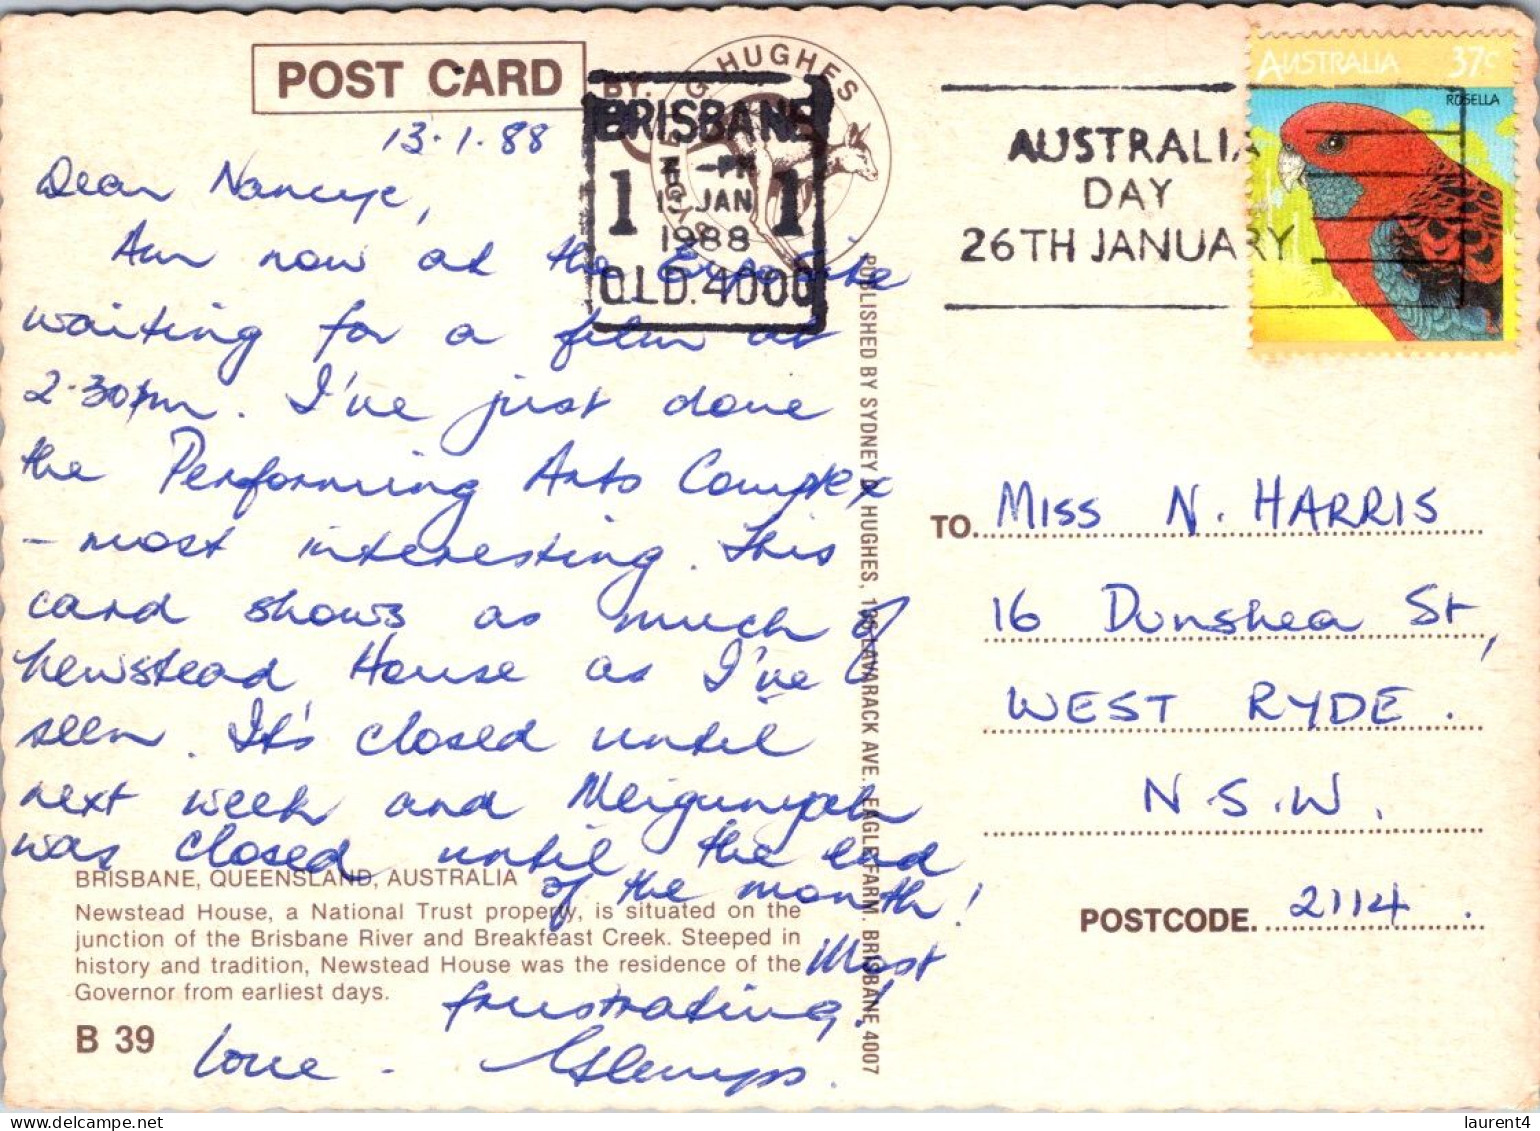 POST CARD
BY:
G HUGHES
13.1.88
BRISBANE
1 -PM 1
13 JAN
1988
QLD. 4000
AUSTRALIA
DAY
26TH JANUARY
AUSTRALIA 37c
ROSELLA
Dear Nancye,
Am now at the Expo site
waiting for a film at
2.30pm. I've just done
the Performing Arts Complex
- most interesting. This
card shows as much of
Newstead House as I've
seen. It's closed until
next week and Meigunyah
was closed until the end
of the month!
Most
frustrating!
Love -
PUBLISHED BY SYDNEY G. HUGHES, LAVARACK AVE. EAGLE FARM. BRISBANE 4007
TO. MISS N. HARRIS
16 Dunshea St,
WEST RYDE.
N.S.W.
POSTCODE. 2114.
BRISBANE, QUEENSLAND, AUSTRALIA
Newstead House, a National Trust property, is situated on the
junction of the Brisbane River and Breakfeast Creek. Steeped in
history and tradition, Newstead House was the residence of the
Governor from earliest days.
B 39
laurent4